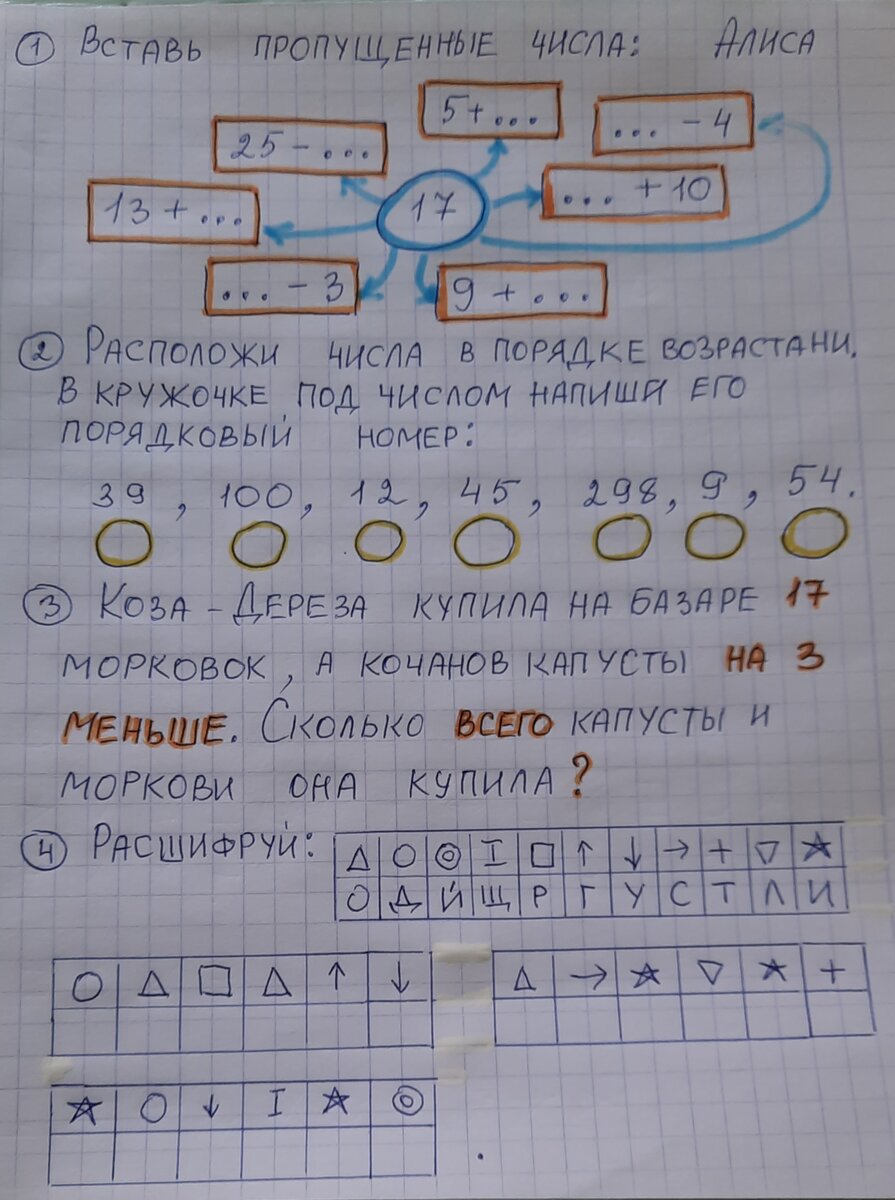 1 Вставь пропущенные числа: Алиса
5+...
... - 4
25 - ...
... + 10
17
13 + ...
... - 3
9 + ...
2 Расположи числа в порядке возрастани.
В кружочке под числом напиши его
порядковый номер:
39, 100, 12, 45, 298, 9, 54.
3 Коза-Дереза купила на базаре 17
морковок, а кочанов капусты на 3
меньше. Сколько всего капусты и
моркови она купила?
4 Расшифруй:
△ ○ ◎ I □ ↑ ↓ → + ▽ ☆
О Д Й Щ Р Г У С Т Л И
○ △ □ △ ↑ ↓
△ → ☆ ▽ ☆ +
☆ ○ ↓ I ☆ ◎
.